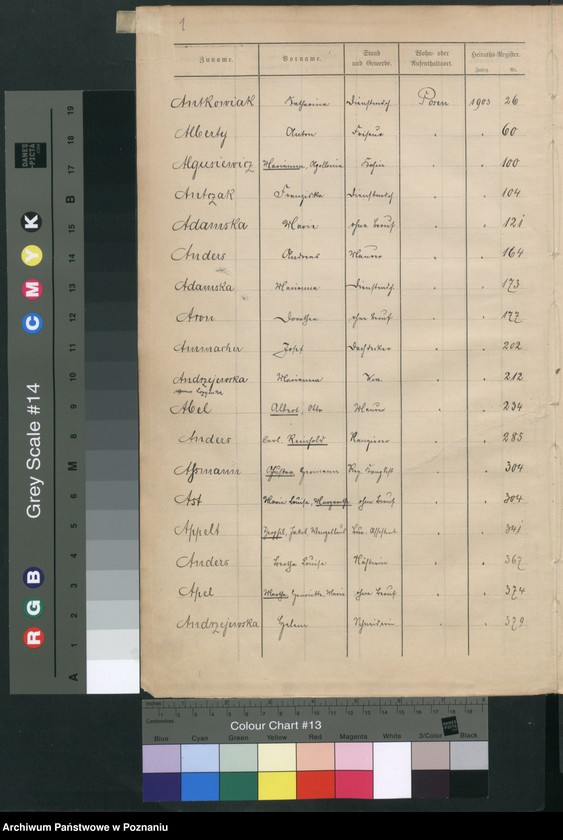 1
Zuname. Vorname. Stand und Gewerbe. Wohn- oder Aufenthaltsort. Heiraths-Register. Jahrg. Nr.
Antkowiak Katharina Dienstmdch Posen 1903 26
Alberty Anton Friseur " " 60
Algusiewicz Marianna, Apollonia " " 100
Antczak Franziska Dienstmdch " " 104
Adamska Marie ohne Beruf " " 121
Anders Andreas Maurer " " 164
Adamska Marianna Dienstmdch. " " 173
Aron Dorothea ohne Beruf " " 177
Ammacher Josef Dachdecker " " 202
Andrzejewska Marianna " " 212
Abel Albert, Otto Maurer " " 234
Anders Carl, Reinhold Rangierer " " 285
Assmann Gustav Hermann " " 304
Ast Marie Louise, Margarethe ohne Beruf " " 304
Appelt Joseph, Jakob " " 341
Anders Louise Näherin " " 367
Apel Martha, Henriette, Marie ohne Beruf " " 374
Andrzejewska Helene Schneiderin " " 379
Grey Scale #14
DANES PICTA .COM
R G B C M Y K
A 1 2 3 4 5 6 M 8 9 10 11 12 13 14 15 B 17 18 19
Inches 1 2 3 4 5 6 7 8
Centimetres 1 2 3 4 5 6 7 8 9 10 11 12 13 14 15 16 17 18 19
Colour Chart #13
Blue Cyan Green Yellow Red Magenta White 3/Color Black
Archiwum Państwowe w Poznaniu